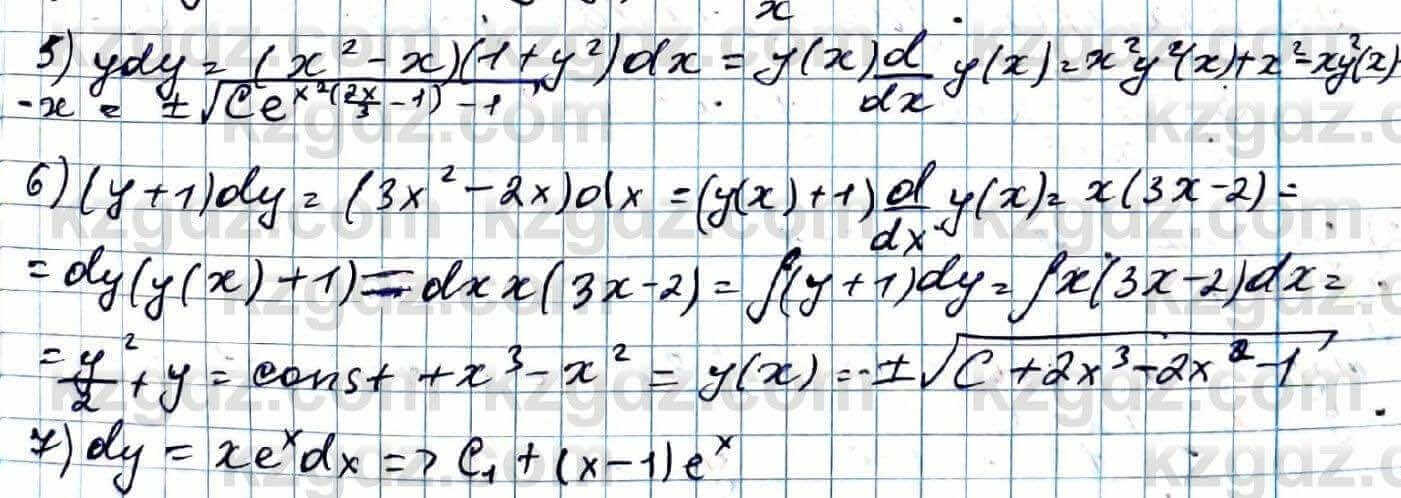 x
5) ydy = (x² - x)(1 + y²)dx = y(x) d/dx y(x) = x²y²(x) + x² - xy²(x)
-x = ±√(Ce^(x²(2x/3 - 1)) - 1)
6) (y+1)dy = (3x² - 2x)dx = (y(x) + 1) d/dx y(x) = x(3x - 2) =
= dy(y(x) + 1) = dxx(3x - 2) = ∫(y + 1)dy = ∫x(3x - 2)dx =
= y²/2 + y = const + x³ - x² = y(x) = -±√(C + 2x³ - 2x² - 1)
7) dy = xeˣdx => C₁ + (x - 1)eˣ
kzgdz.com